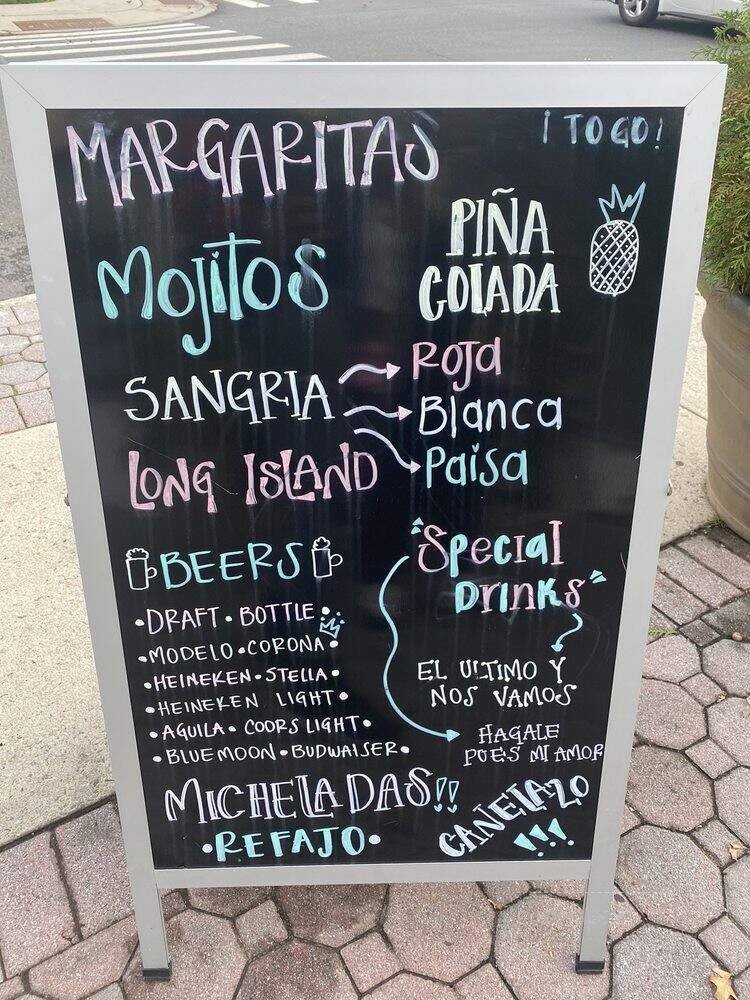 MARGARITAS
¡TO GO!
PIÑA
COLADA
MOJITOS
SANGRIA
ROJA
Blanca
Paisa
LONG ISLAND
BEERS
•DRAFT•BOTTLE•
•MODELO•CORONA•
•HEINEKEN•STELLA•
•HEINEKEN LIGHT•
•AGUILA•COORS LIGHT•
•BLUE MOON•BUDWAISER•
"Special
Drinks"
EL ULTIMO Y
NOS VAMOS
HAGALE
PUES MI AMOR
MICHELADAS!!
•REFAJO•
CANELAZO
!!!